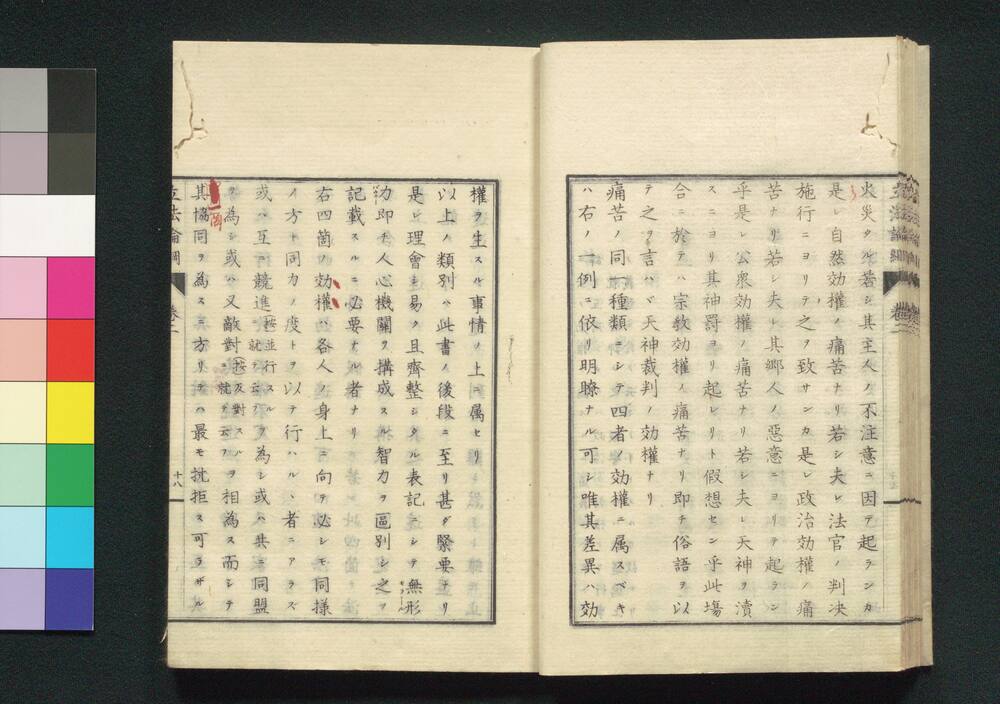 火災タル若シ其主人ノ不注意ニ因テ起ランカ
是レ自然効權ノ痛苦ナリ若シ夫レ法官ノ判决
施行ニヨリテ之ヲ致サンカ是レ政治効權ノ痛
苦ナリ若シ夫レ其郷人ノ惡意ニヨリテ起ラン
乎是レ公衆効權ノ痛苦ナリ若シ夫レ天神ヲ瀆
スニヨリ其神罰ヨリ起レリト假想セン乎此塲
合ニ於テハ宗教効權ノ痛苦ナリ即チ俗語ヲ以
テ之ヲ言ハヾ天神裁判ノ効權ナリ
痛苦ノ同一種類ニシテ四者ノ効權ニ属スベキ
ハ右ノ一例ニ依リ明暸ナル可シ唯其差異ハ効
權ヲ生スル事情ノ上ニ属セリ
以上ノ類別ハ此書ノ後段ニ至リ甚ダ緊要ナリ
是レ理會シ易ク且齊整シタル表記ニシテ無形
力即チ人心機關ヲ搆成スル智力ヲ區別シ之ヲ
記載スルニ必要ナル者ナリ
右四箇ノ効權ハ各人ノ身上ニ向テ必シモ同様
ノ方ト同力ノ度トヲ以テ行ハルヽ者ニアラズ
或ハ互ニ競進(按並行スルニ就テ云フ)ヲ為シ或ハ共ニ同盟
ヲ為シ或ハ又敵對(按反對スルニ就テ云フ)ヲ相為ス而シテ
其協同ヲ為ス方リテハ最モ抗拒ス可ラザル
立法論綱 卷二 十八